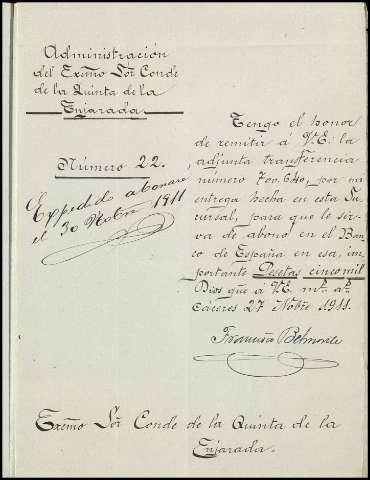 Administración
del Exmo Sór Conde
de la Quinta de la
Enjarada.
Número 22.
Expedido abonaré
el 30 Nobre 1911
Tengo el honor
de remitir á V.E. la
adjunta transferencia
número 700.640, por mi
entrega hecha en esta Su
cursal, para que le sir
va de abono en el Ban
co de España en esa, im
portante Pesetas cinco mil
Dios gûe á V.E. ms. as.
Cáceres 27 Nobre 1911.
Francisco Belmonte
Exmo Sór Conde de la Quinta de la
Enjarada.